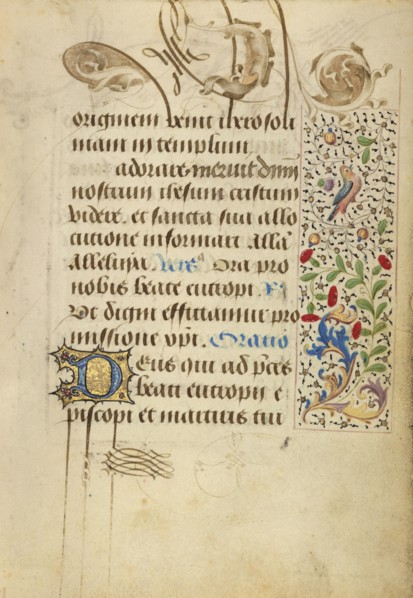 originem venit iherosoli
mam in templum
adorare meruit dnm̄
nostrum ihesum cristum
videre. et sancta sua allo
cutione informari Allā
Alleluya. Vers᷒ Ora pro
nobis beate eutropi. R᷒
Vt digni efficiamur pro
missione xp̄i. Oratio
Deus qui ad p̄ces
beati eutropii e
piscopi et martiris tui